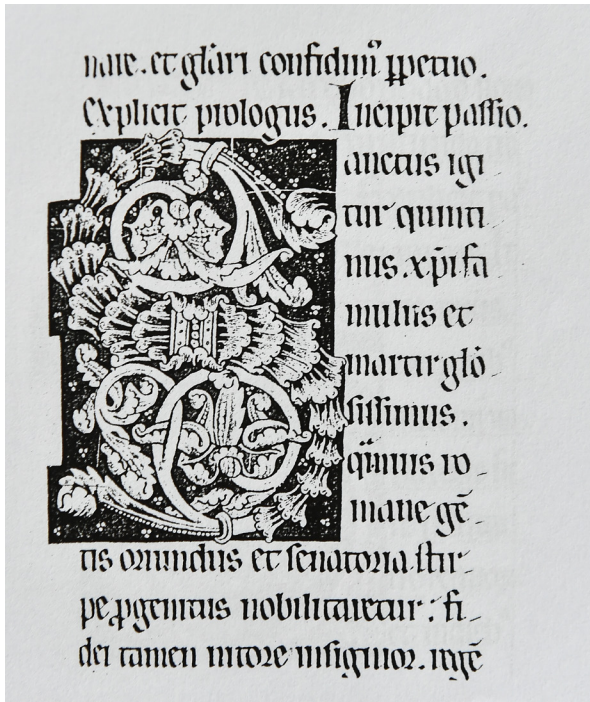 nare. et gl̄ari confidimꝰ ꝑpetuo.
Explicit prologus. Incipit passio.
Sanctus igi-
tur quinti-
nus .xp̄i fa-
mulus et
martir gl̄o-
sissimus.
qͣmuis ro-
mane gē-
tis oriundus et senatoria stir-
pe ꝓgenitus nobilitaretur: fi-
dei tamen nitore insignior. regē